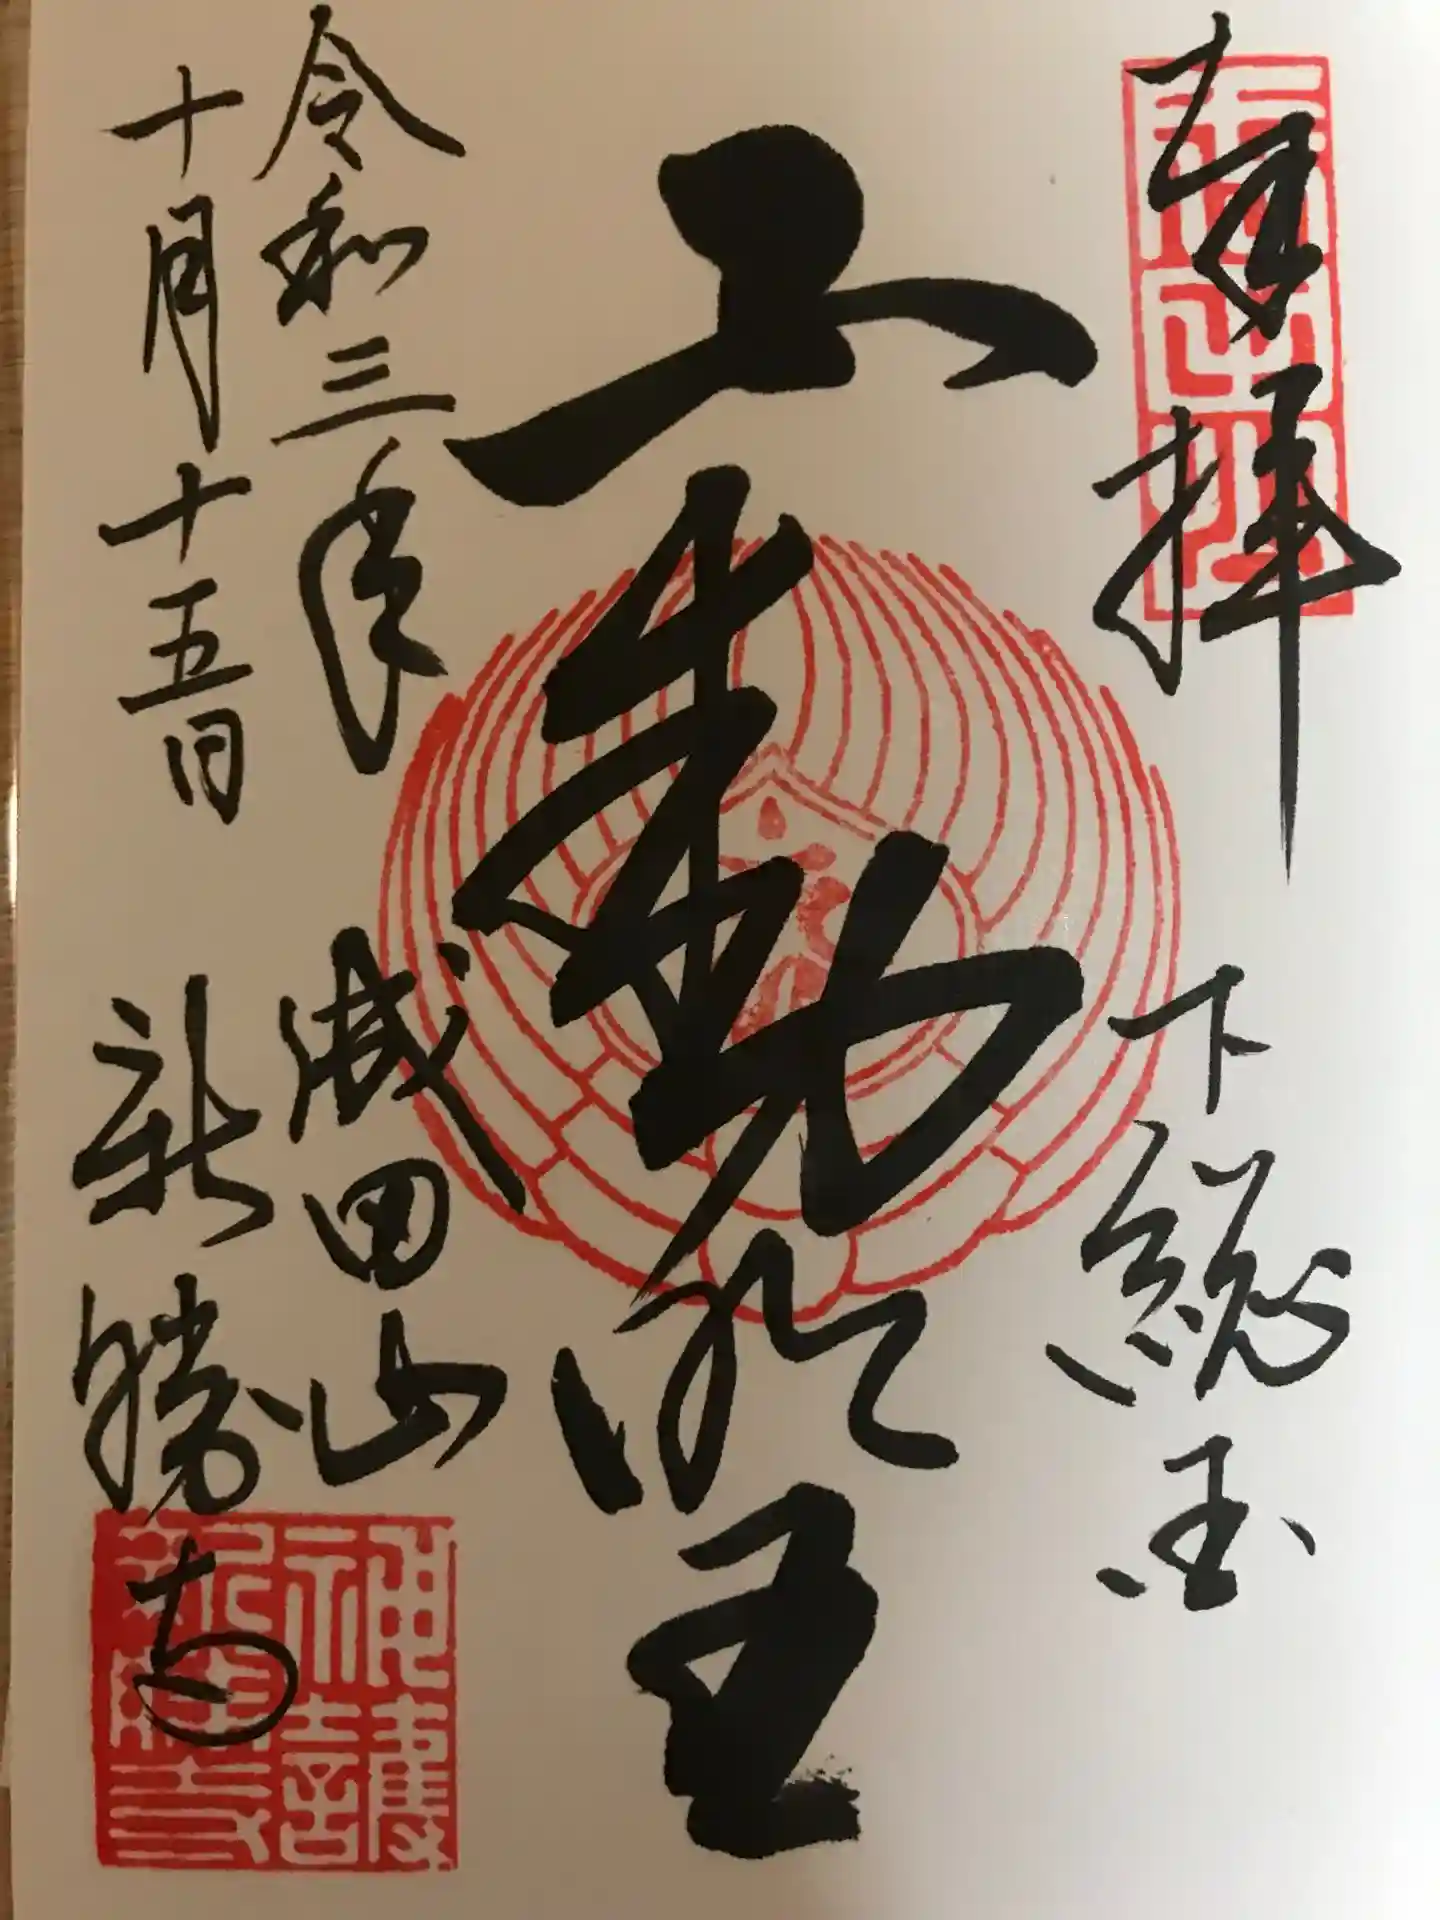 奉拝
下総国
不動明王
令和三年
成田山
十月十五日
新勝寺
神護
新勝寺